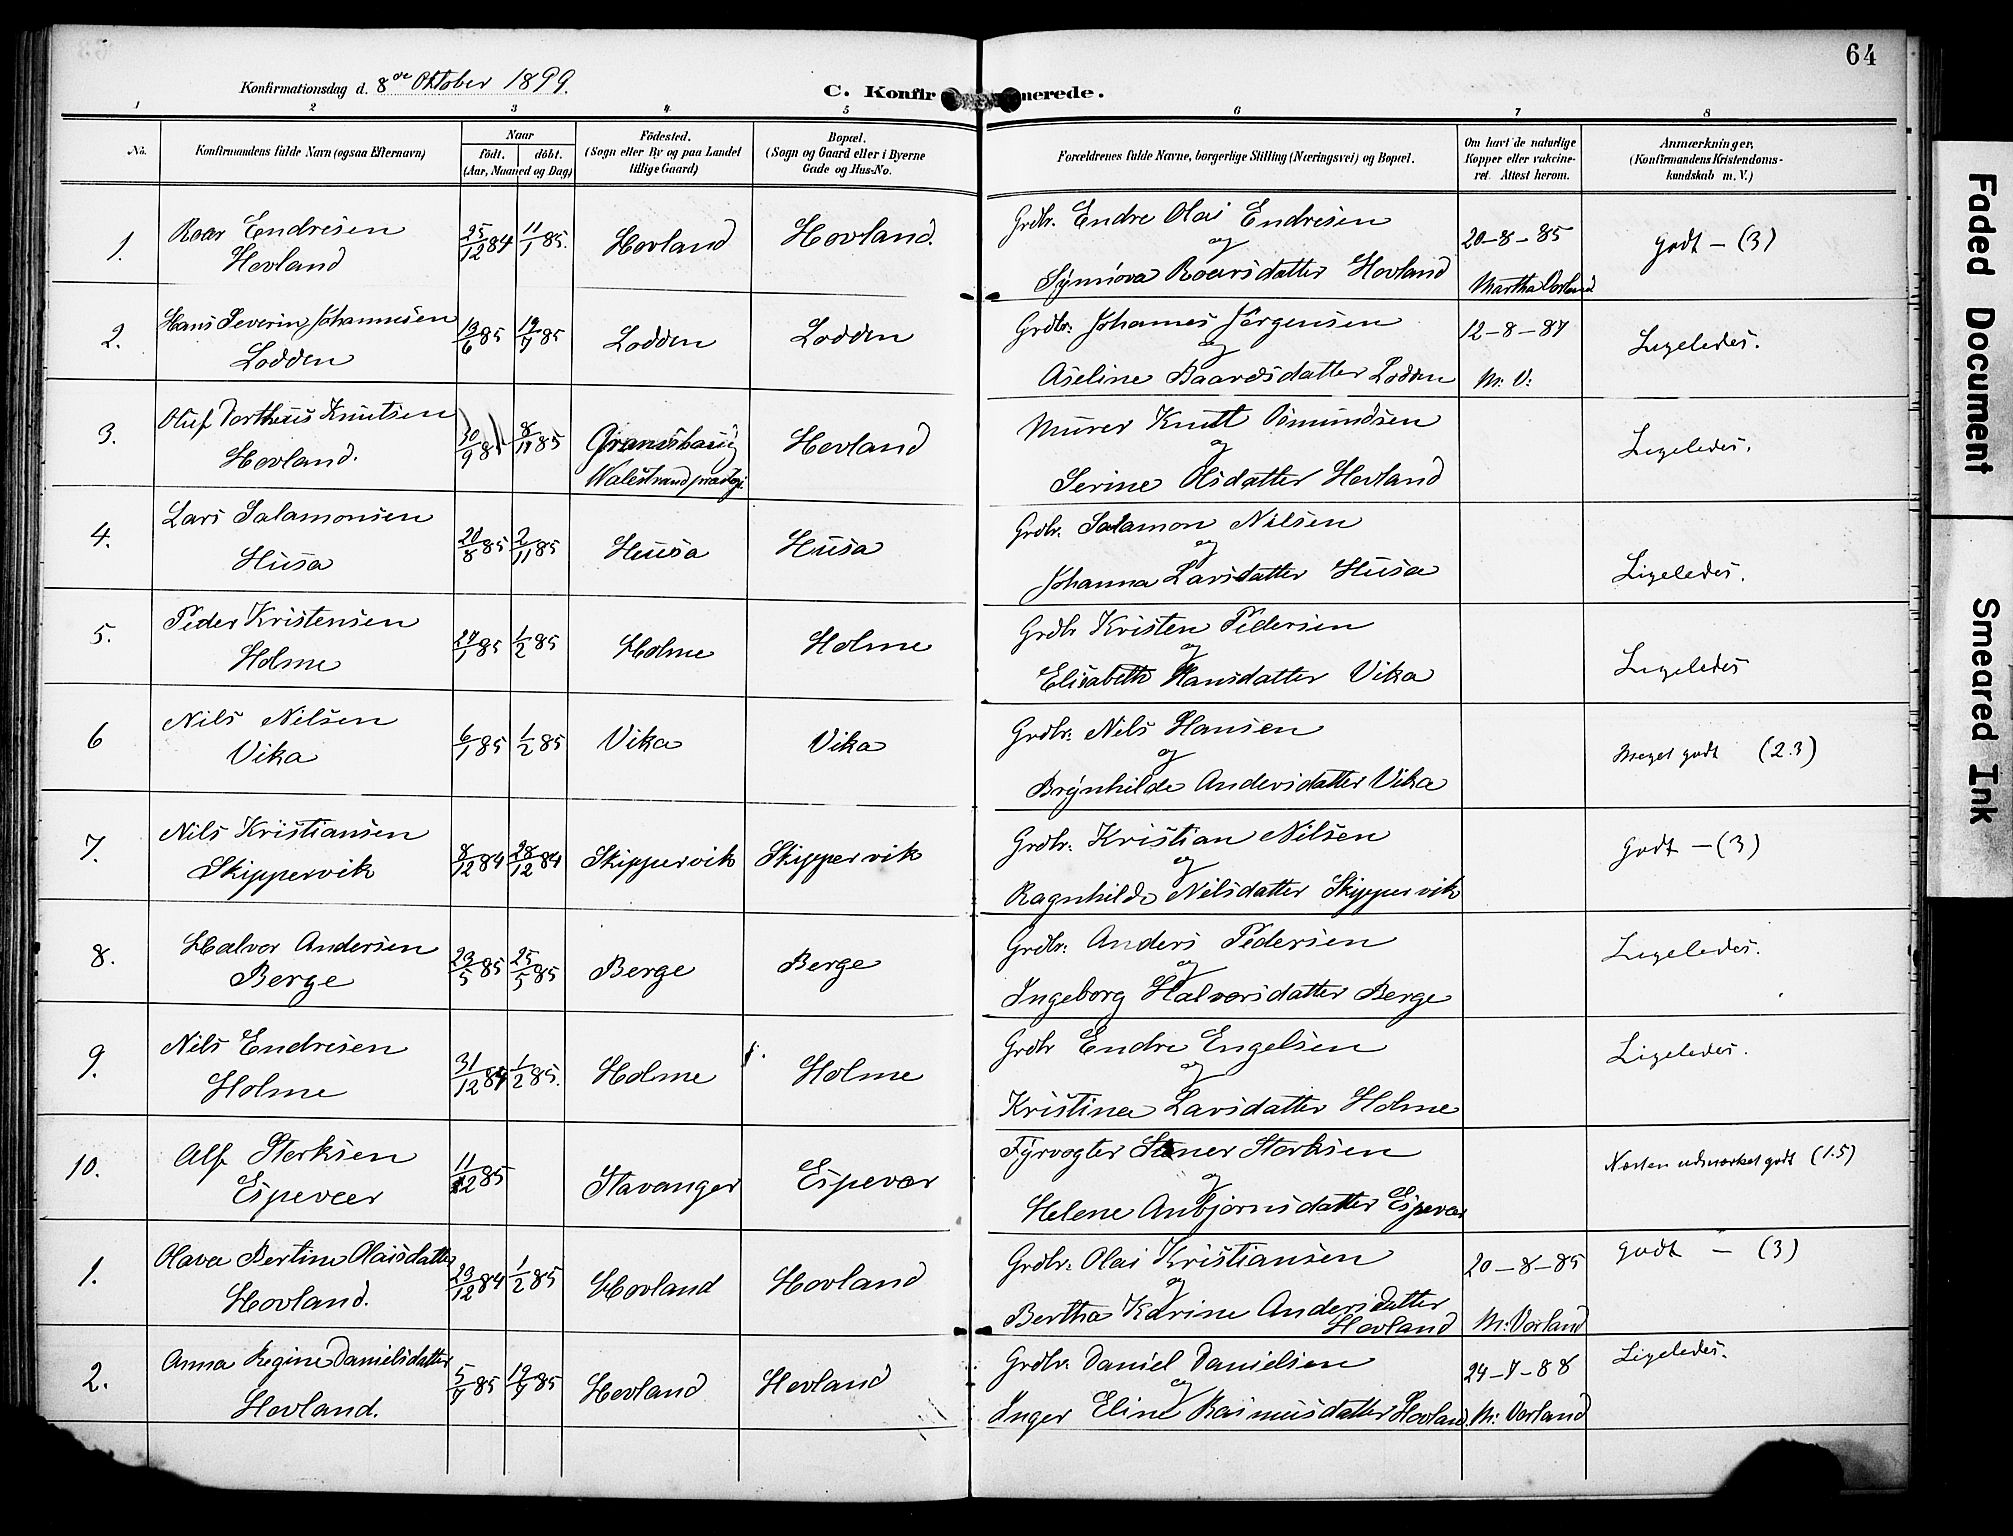 64
Konfirmationsdag d. 8de Oktober 1899.
C. Konfirmerede.
1 2 3 4 5 6 7 8
No. Konfirmandens fulde Navn (ogsaa Efternavn) Naar født. døbt. (Aar, Maaned og Dag) Födested. (Sogn eller By og paa Landet tillige Gaard) Bopæl. (Sogn og Gaard eller i Byerne Gade og Hus-No. Forældrenes fulde Navne, borgerlige Stilling (Næringsvei) og Bopæl. Om havt de naturlige Kopper eller vakcineret. Attest herom. Anmærkninger, (Konfirmandens Kristendomskundskab m. V.)
1. Roar Endresen 25/12 84 11/1 85. Hovland Hovland. Grdbr. Endre Olai Endresen 20-8-85 Godt - (3)
Hovland og
Synnöva Roarsdatter Hovland Martha Vorland
2. Hans Severin Johannesen 13/6 85 19/7 85 Lodden Lodden Grdbr. Johannes Jörgensen 12-8-87 Ligeledes.
Lodden og
Aseline Baardsdatter Lodden M: V:
3. Oluf Dortheus Knutsen 30/9 85 8/11 85 Hovland Murer Knut Osmundsen Ligeledes.
Hovland. og
Walestrand prestegj. Serine Olsdatter Hovland
4. Lars Salamonsen 2/11 85 Husa Husa Grdbr. Salamon Nilsen
Husa og
Johanna Larsdatter Husa Ligeledes.
5. Peder Kristensen 27/1 85 1/2 85 Holme Holme Grdbr Kristen Pedersen
Holme og
Elisabeth Hansdatter Vika Ligeledes
6 Nils Nilsen 6/1 85 1/2 85 Vika Vika Grdbr. Nils Hansen
Vika og Meget godt (2.3)
Brynhilde Andersdatter Vika
7. Nils Kristiansen 8/12 84 28/12 84 Skippervik Skippervik Grdbr. Kristian Nilsen Godt - (3)
Skippervik og
Ragnhilde Nilsdatter Skippervik
8. Halvor Andersen 23/5 85 25/5 85 Berge Berge Grdbr. Anders Pedersen Ligeledes.
Berge og
Ingeborg Halvorsdatter Berge
9. Nils Endresen 31/12 84 1/2 85. Holme Holme Grdbr Endre Engelsen Ligeledes.
Holme og
Kristina Larsdatter Holme
10. Alf Storksen 11/12 85 Stavanger Espevær Fyrvogter Storksen Næsten udmærket godt (1.5)
Espevær og
Helene Anbjørnsdatter Espevær
1. Olava Bertine Olaisdatter 23/12 84 1/2 85 Hovland Hovland Grdbr. Olai Kristiansen 20-8-85 Godt - (3)
Hovland. og
Bertha Karine Andersdatter
Hovland M: Vorland
2. Anna Regine Danielsdatter 5/7 85 19/7 85 Hovland Hovland Grdbr. Daniel Danielsen 24-7-88 Ligeledes.
Hovland. og
Inger Eline Rasmusdatter Hovland. M: Vorland
Faded Document
Smeared Ink